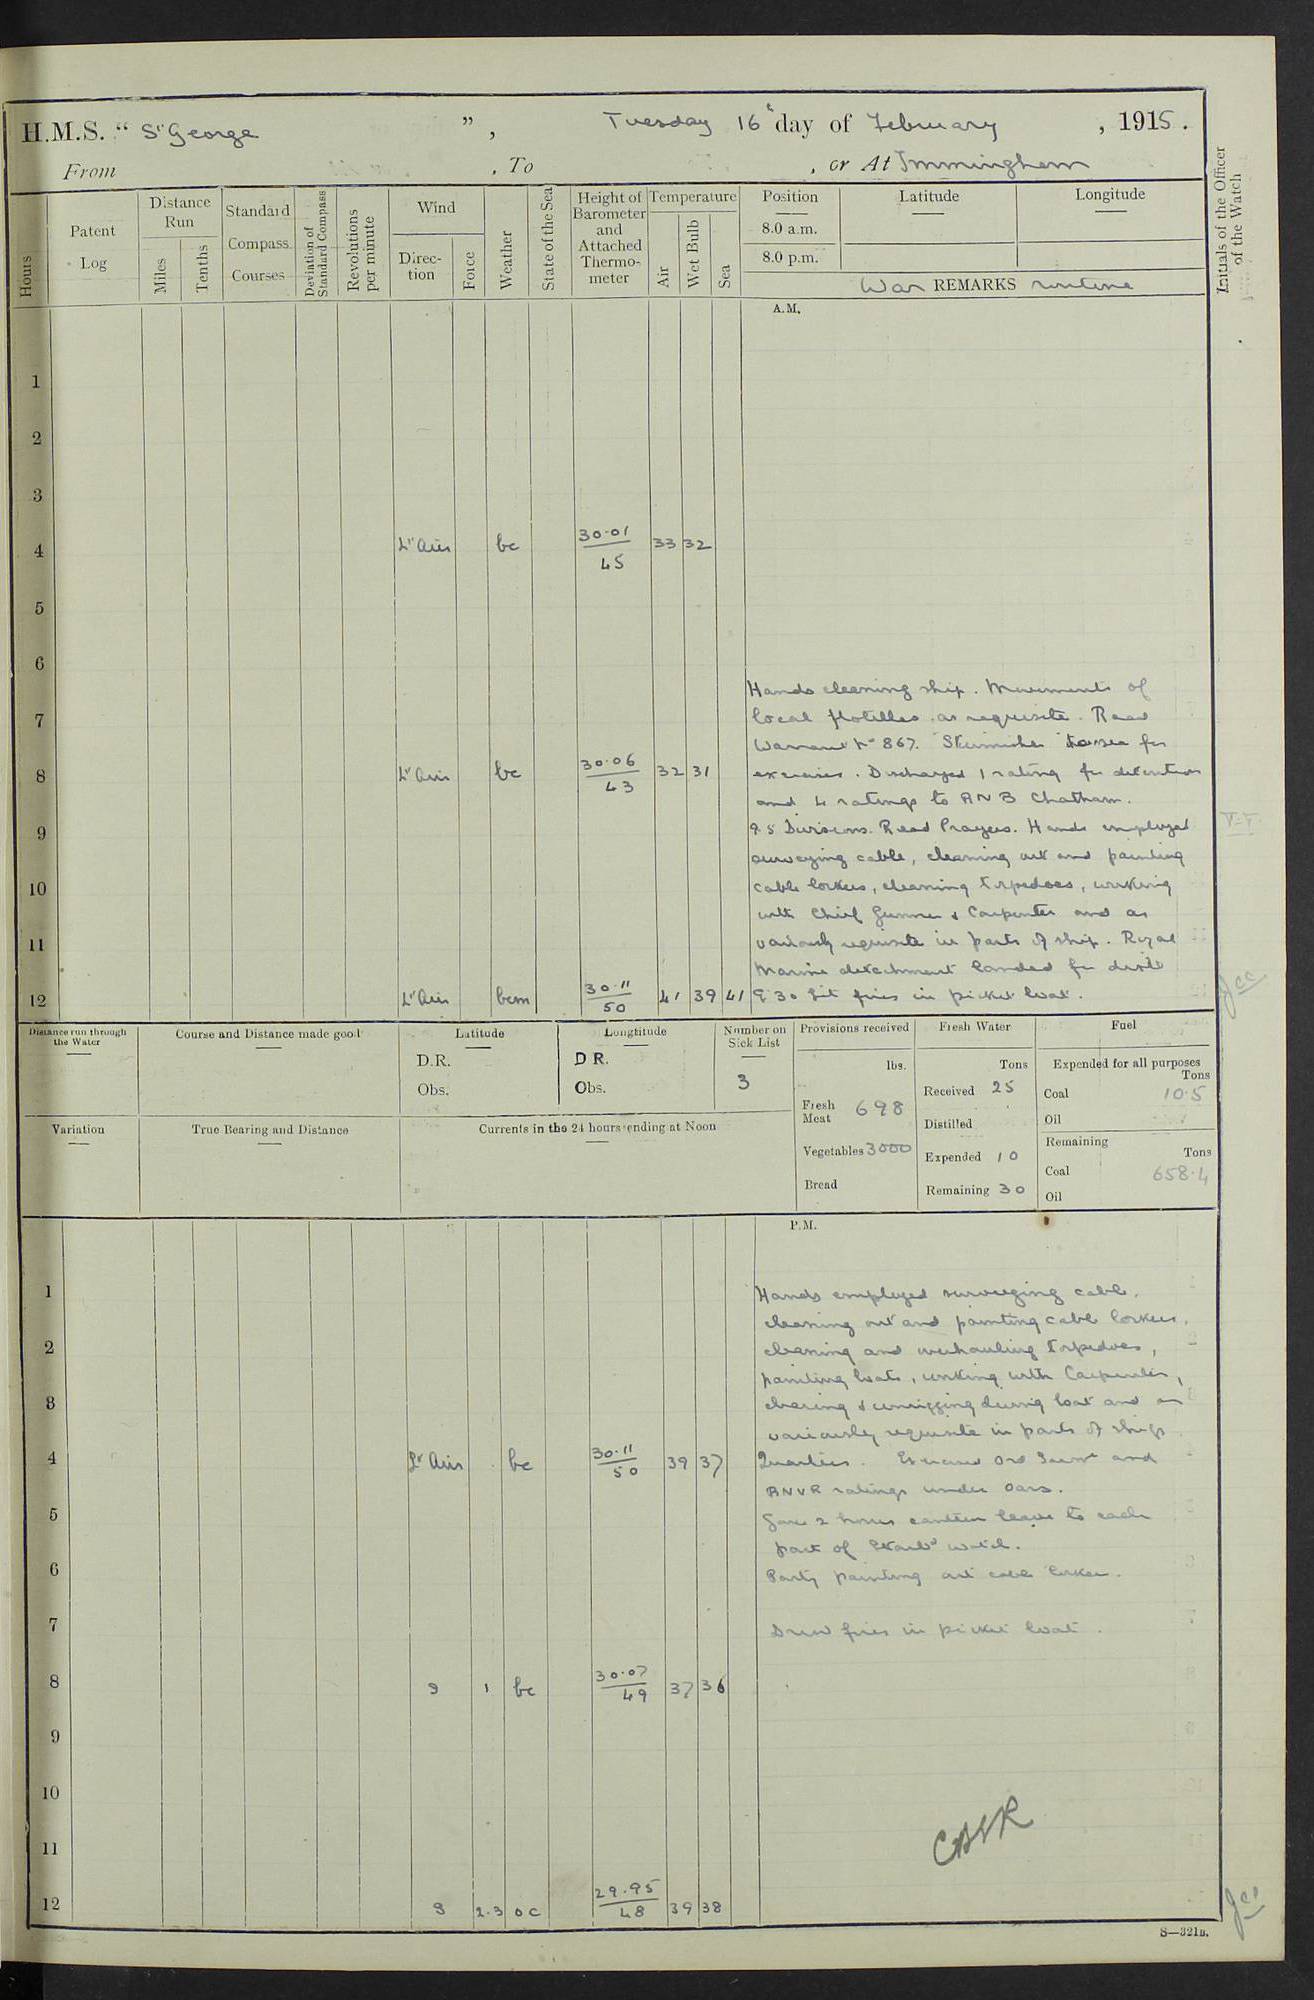 H.M.S. "St George", Tuesday 16th day of February, 1915.
From , To , or At Immingham
Hours
Patent Log
Distance Run
Miles
Tenths
Standard Compass Courses
Deviation of Standard Compass
Revolutions per minute
Wind
Direction
Force
Weather
State of the Sea
Height of Barometer and Attached Thermometer
Temperature
Air
Wet Bulb
Sea
Position
8.0 a.m.
8.0 p.m.
Latitude
Longitude
Initials of the Officer of the Watch
War REMARKS routine
A.M.
1
2
3
4 Lt Airs bc 30.01 45 33 32
5
6
Hands cleaning ship. Movements of
7 local flotillas as requisite. Read
Warrant No 867. "Skirmisher" to sea for
8 Lt Airs bc 30.06 43 32 31 exercises. Discharged 1 rating for detention
and 4 ratings to RNB Chatham.
9 9.5 Divisions. Read Prayers. Hands employed
surveying cable, cleaning out and painting
10 cable lockers, cleaning torpedoes, working
with Chief Gunner & Carpenter and as
11 variously requisite in parts of ship. Royal
Marine detachment landed for drill
12 Lt Airs bcm 30.11 50 41 39 41 9.30 Lit fires in picket boat.
Distance run through the Water
Course and Distance made good
Latitude
D.R.
Obs.
Longtitude
D R.
Obs.
Number on Sick List
3
Provisions received
lbs.
Fresh Meat 698
Vegetables 3000
Bread
Fresh Water
Tons
Received 25
Distilled
Expended 10
Remaining 30
Fuel
Expended for all purposes
Tons
Coal 10.5
Oil
Remaining
Tons
Coal 658.4
Oil
Variation
True Bearing and Distance
Currents in the 24 hours ending at Noon
P.M.
1 Hands employed surveying cable,
cleaning out and painting cable lockers,
2 cleaning and overhauling torpedoes,
painting boats, working with Carpenter,
3 clearing & unrigging diving boat and as
variously requisite in parts of ship
4 Lt Airs bc 30.11 50 39 37 Quarters. Exercised Ord Seamn and
RNVR ratings under oars.
5 Gave 2 hours canteen leave to each
part of Starbd watch.
6 Party painting out cable locker.
7 Drew fires in picket boat.
8 S 1 bc 30.07 49 37 36
9
10
11
12 S 2.3 oc 29.95 48 39 38
S—321B.